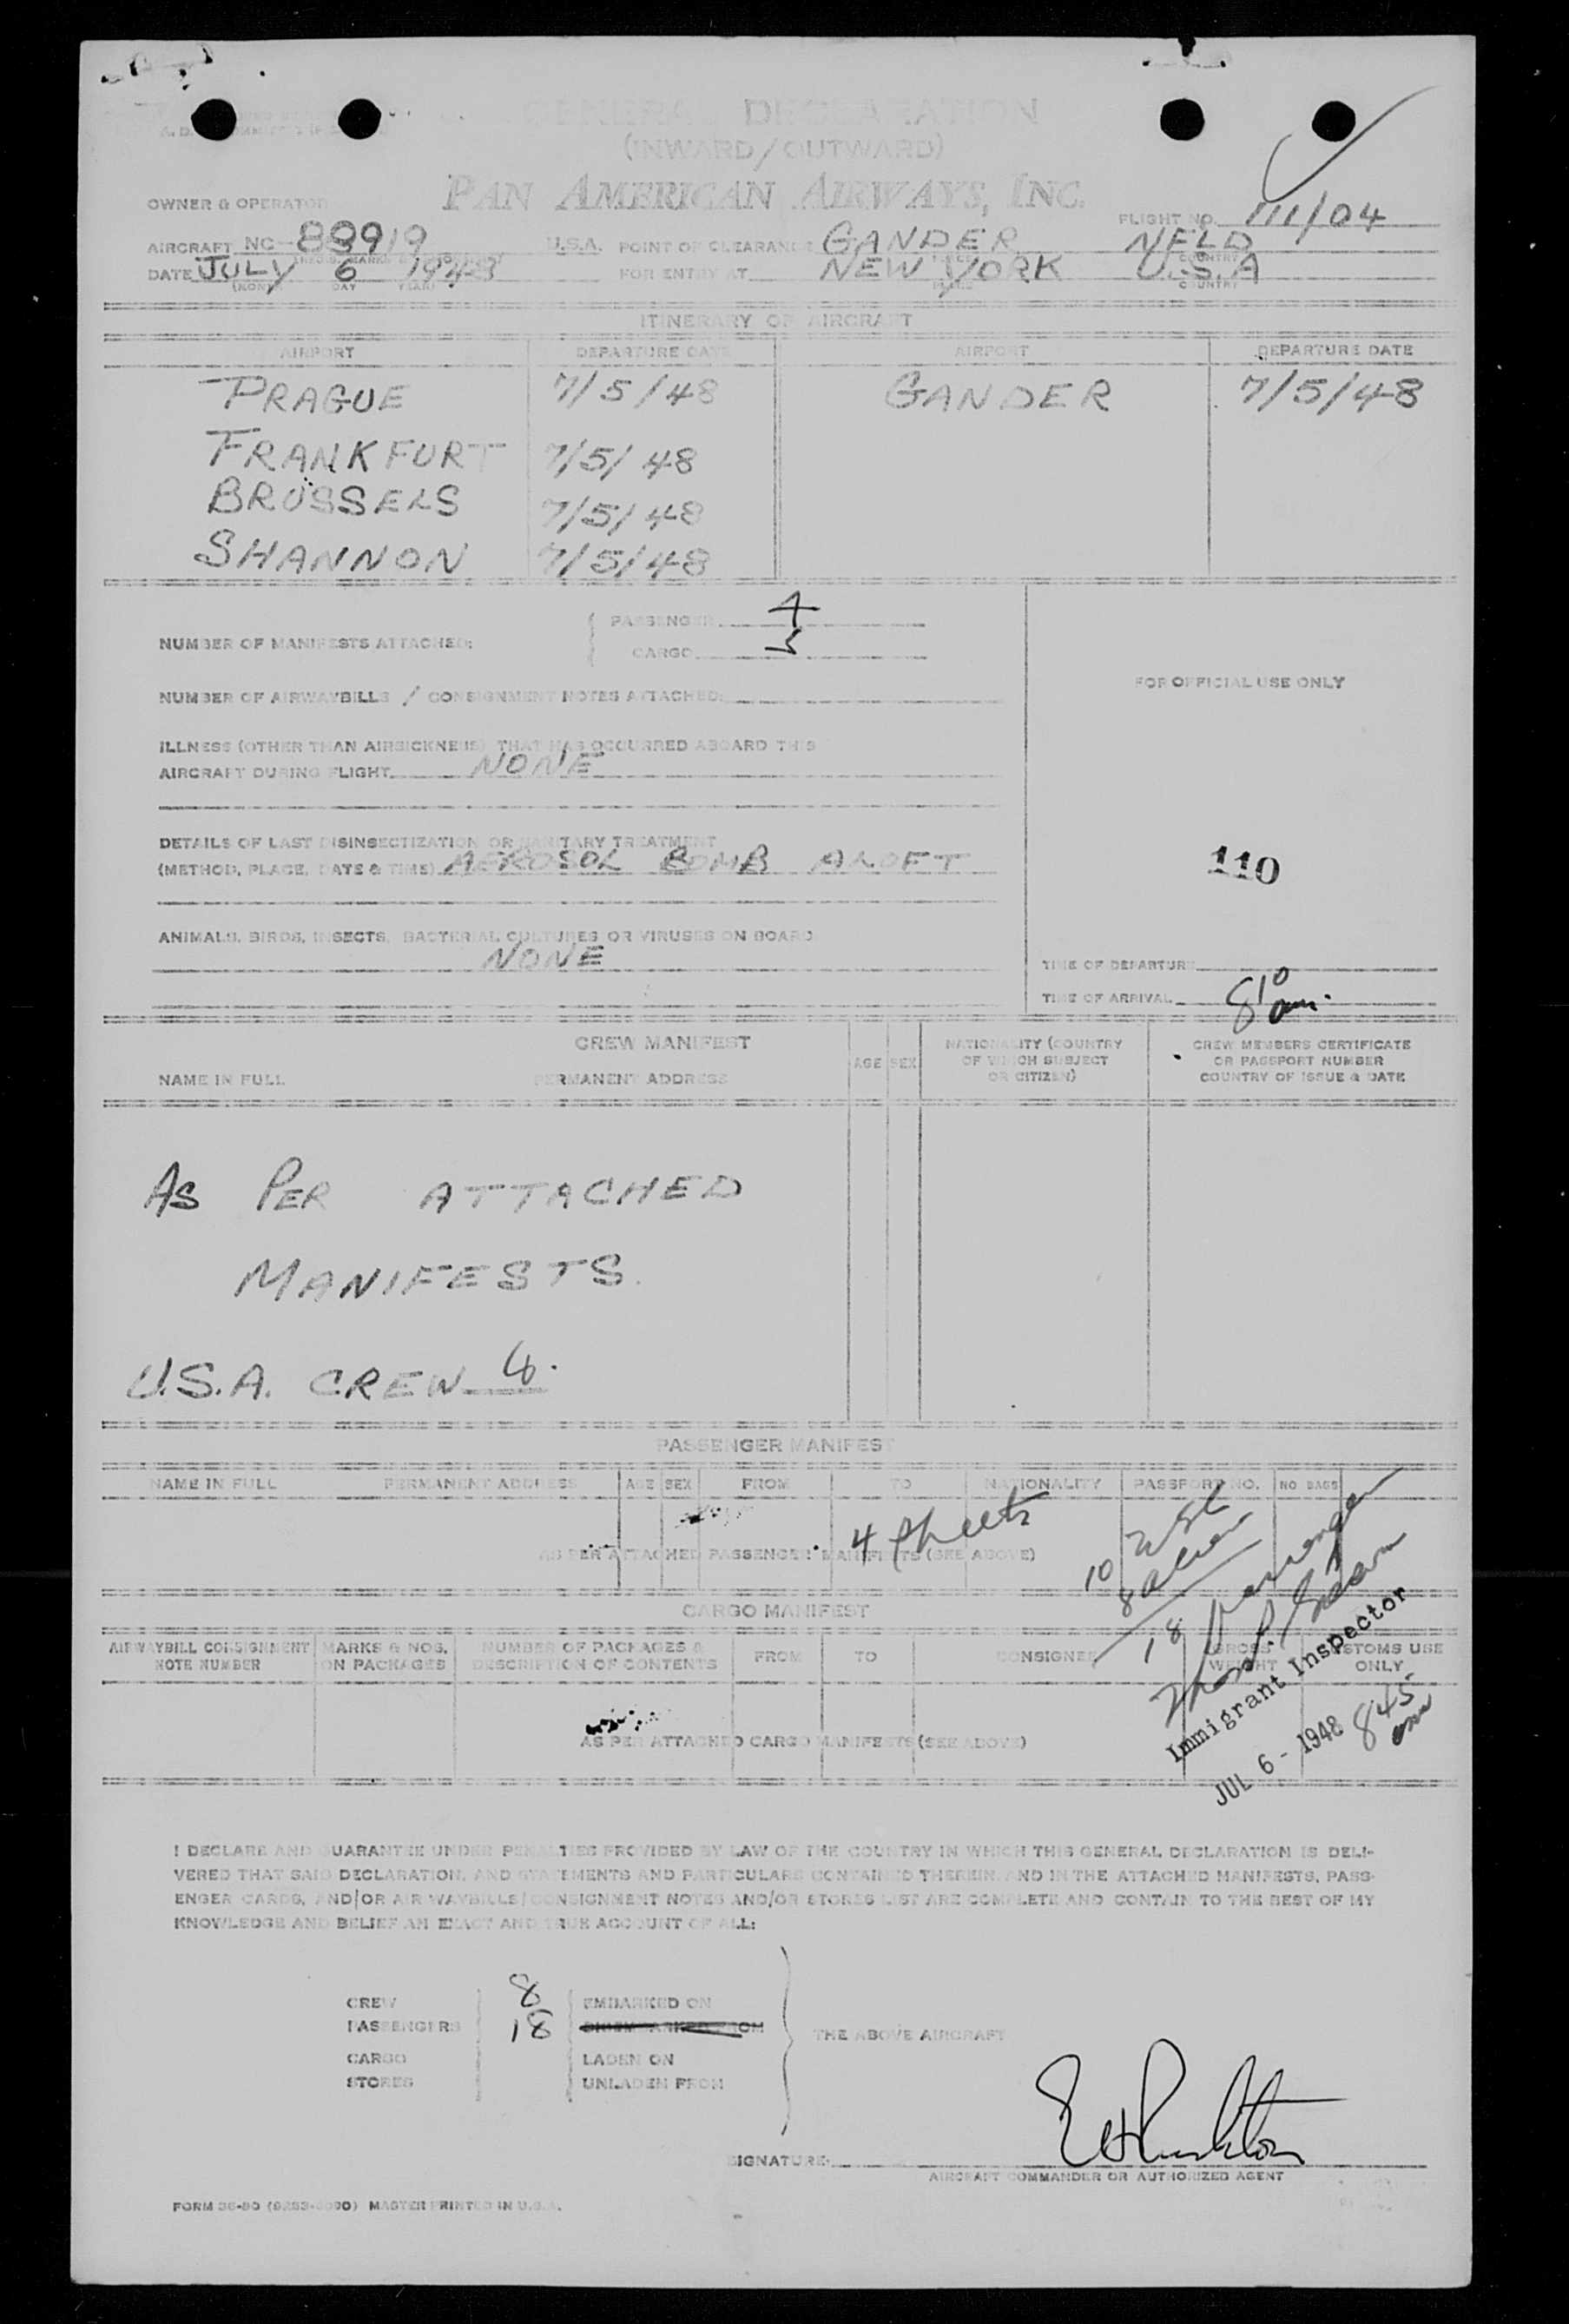 GENERAL DECLARATION
(INWARD/OUTWARD)
PAN AMERICAN AIRWAYS, INC.
OWNER & OPERATOR
FLIGHT NO. 111/04
AIRCRAFT NC- 88919 U.S.A. POINT OF CLEARANCE GANDER NFLD
DATE JULY 6 1948 FOR ENTRY AT NEW YORK U.S.A
(MONTH DAY YEAR) PLACE COUNTRY
ITINERARY OF AIRCRAFT
AIRPORT DEPARTURE DATE AIRPORT DEPARTURE DATE
PRAGUE 7/5/48 GANDER 7/5/48
FRANKFURT 7/5/48
BRUSSELS 7/5/48
SHANNON 7/5/48
PASSENGER 4
NUMBER OF MANIFESTS ATTACHED:
CARGO 5
FOR OFFICIAL USE ONLY
NUMBER OF AIRWAYBILLS / CONSIGNMENT NOTES ATTACHED:
ILLNESS (OTHER THAN AIRSICKNESS) THAT HAS OCCURRED ABOARD THIS
AIRCRAFT DURING FLIGHT NONE
DETAILS OF LAST DISINSECTIZATION OR SANITARY TREATMENT
(METHOD, PLACE, DATE & TIME) AEROSOL BOMB ALOFT
110
ANIMALS, BIRDS, INSECTS, BACTERIAL CULTURES OR VIRUSES ON BOARD
NONE
TIME OF DEPARTURE
TIME OF ARRIVAL 8 10 am.
CREW MANIFEST
NAME IN FULL PERMANENT ADDRESS AGE SEX NATIONALITY (COUNTRY OF WHICH SUBJECT OR CITIZEN) CREW MEMBERS CERTIFICATE OR PASSPORT NUMBER COUNTRY OF ISSUE & DATE
AS PER ATTACHED
MANIFESTS.
U.S.A. CREW
PASSENGER MANIFEST
NAME IN FULL PERMANENT ADDRESS AGE SEX FROM TO NATIONALITY PASSPORT NO. NO BAGS
4 sheets
AS PER ATTACHED PASSENGER MANIFESTS (SEE ABOVE)
10 USC
8 alien
18 passengers
CARGO MANIFEST
AIRWAYBILL CONSIGNMENT NOTE NUMBER MARKS & NOS. ON PACKAGES NUMBER OF PACKAGES & DESCRIPTION OF CONTENTS FROM TO CONSIGNEE GROSS WEIGHT CUSTOMS USE ONLY
Immigrant Inspector
JUL 6 - 1948 8 45 am
AS PER ATTACHED CARGO MANIFESTS (SEE ABOVE)
I DECLARE AND GUARANTEE UNDER PENALTIES PROVIDED BY LAW OF THE COUNTRY IN WHICH THIS GENERAL DECLARATION IS DELI-
VERED THAT SAID DECLARATION, AND STATEMENTS AND PARTICULARS CONTAINED THEREIN AND IN THE ATTACHED MANIFESTS, PASS-
ENGER CARDS, AND/OR AIR WAYBILLS/CONSIGNMENT NOTES AND/OR STORES LIST ARE COMPLETE AND CONTAIN TO THE BEST OF MY
KNOWLEDGE AND BELIEF AN EXACT AND TRUE ACCOUNT OF ALL:
CREW 8 EMBARKED ON
PASSENGERS 18 DISEMBARKED FROM
THE ABOVE AIRCRAFT
CARGO LADEN ON
STORES UNLADEN FROM
SIGNATURE
AIRCRAFT COMMANDER OR AUTHORIZED AGENT
MASTER PRINTED IN U.S.A.